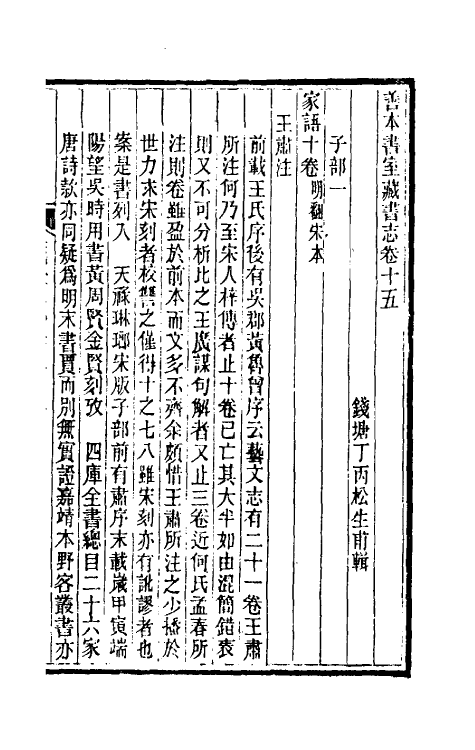 善本書室藏書志卷十五
錢塘丁丙松生甫輯
子部一
家語十卷明翻宋本
王肅注
前載王氏序後有吳郡黃魯曾序云藝文志有二十一卷王肅
所注何乃至宋人梓傳者止十卷已亡其大半如由混簡錯袠
則又不可分析比之王廣謀句解者又止三卷近何氏孟春所
注則卷雖盈於前本而文多不齊余頗惜王肅所注之少播於
世力求宋刻者校讐之僅得十之七八雖宋刻亦有訛謬者也
案是書刻入　天祿琳瑯宋版子部前有肅序末載歲甲寅端
陽望吳時用書黃周賢金賢刻攷　四庫全書總目二十六家
唐詩款亦同疑為明末書賈而別無實證嘉靖本野客叢書亦